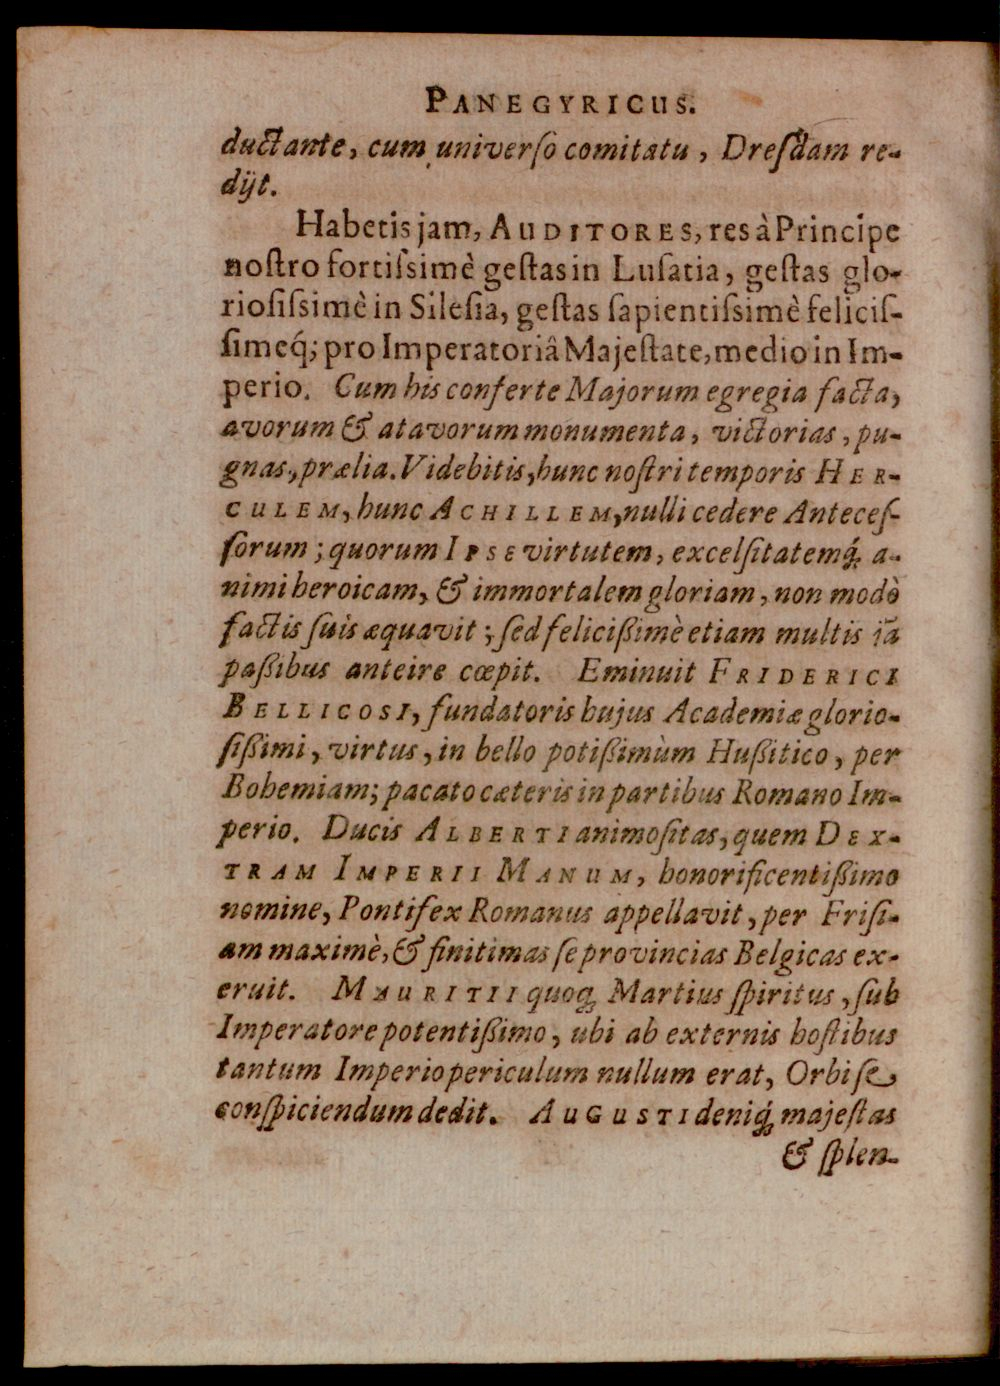 PANEGYRICUS.
ductante, cum universo comitatu, Dreſdam re-
dijt.
Habetis jam, AUDITORES, res à Principe
noſtro fortiſsimè geſtas in Luſatia, geſtas glo-
rioſiſsimè in Sileſia, geſtas ſapientiſsimè feliciſ-
ſimeq́; pro Imperatoriâ Majeſtate, medio in Im-
perio. Cum his conferte Majorum egregia facta,
avorum & atavorum monumenta, victorias, pu-
gnas, prælia. Videbitis, hunc noſtri temporis HER-
CULEM, hunc ACHILLEM, nulli cedere Anteceſ-
ſorum; quorum IPSE virtutem, excelſitatemq́; a-
nimi heroicam, & immortalem gloriam, non modò
factis ſuis æquavit; ſed feliciſſimè etiam multis iã
paſſibus anteire cœpit. Eminuit FRIDERICI
BELLICOSI, fundatoris hujus Academiæ glorio-
ſiſſimi, virtus, in bello potiſſimùm Huſſitico, per
Bohemiam; pacato cæteris in partibus Romano Im-
perio. Ducis ALBERTI animoſitas, quem DEX-
TRAM IMPERII MANUM, honorificentiſſimo
nomine, Pontifex Romanus appellavit, per Friſi-
am maximè, & finitimas ſe provincias Belgicas ex-
eruit. MAURITII quoq; Martius ſpiritus, ſub
Imperatore potentiſſimo, ubi ab externis hoſtibus
tantum Imperio periculum nullum erat, Orbi ſe
conſpiciendum dedit. AUGUSTI deniq́; majeſtas
& ſplen-